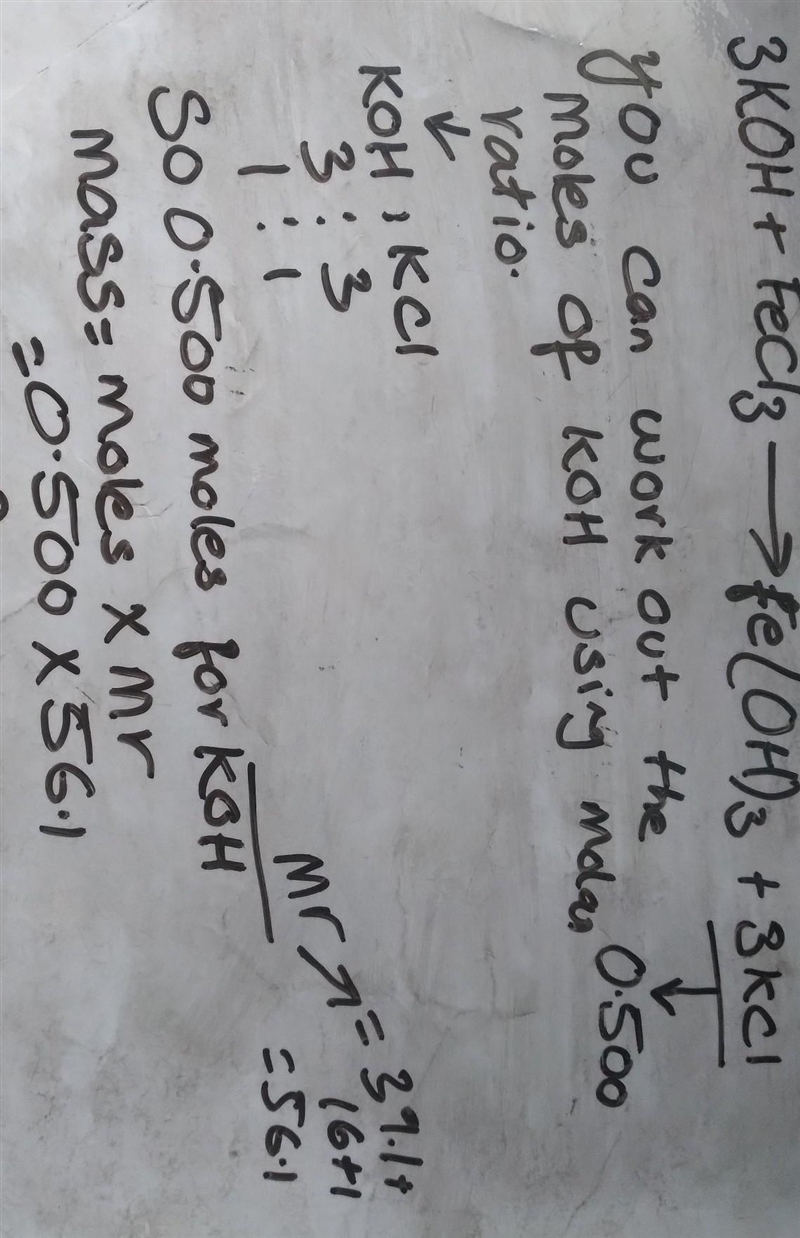 3KOH + FeCl3 → Fe(OH)3 + 3KCl
You can work out the
0.500
moles of KOH using molar
ratio.
KOH : KCl
3 : 3
1 : 1
Mr = 39.1+
16+1
= 56.1
So 0.500 moles for KOH
Mass = moles x Mr
= 0.500 x 56.1